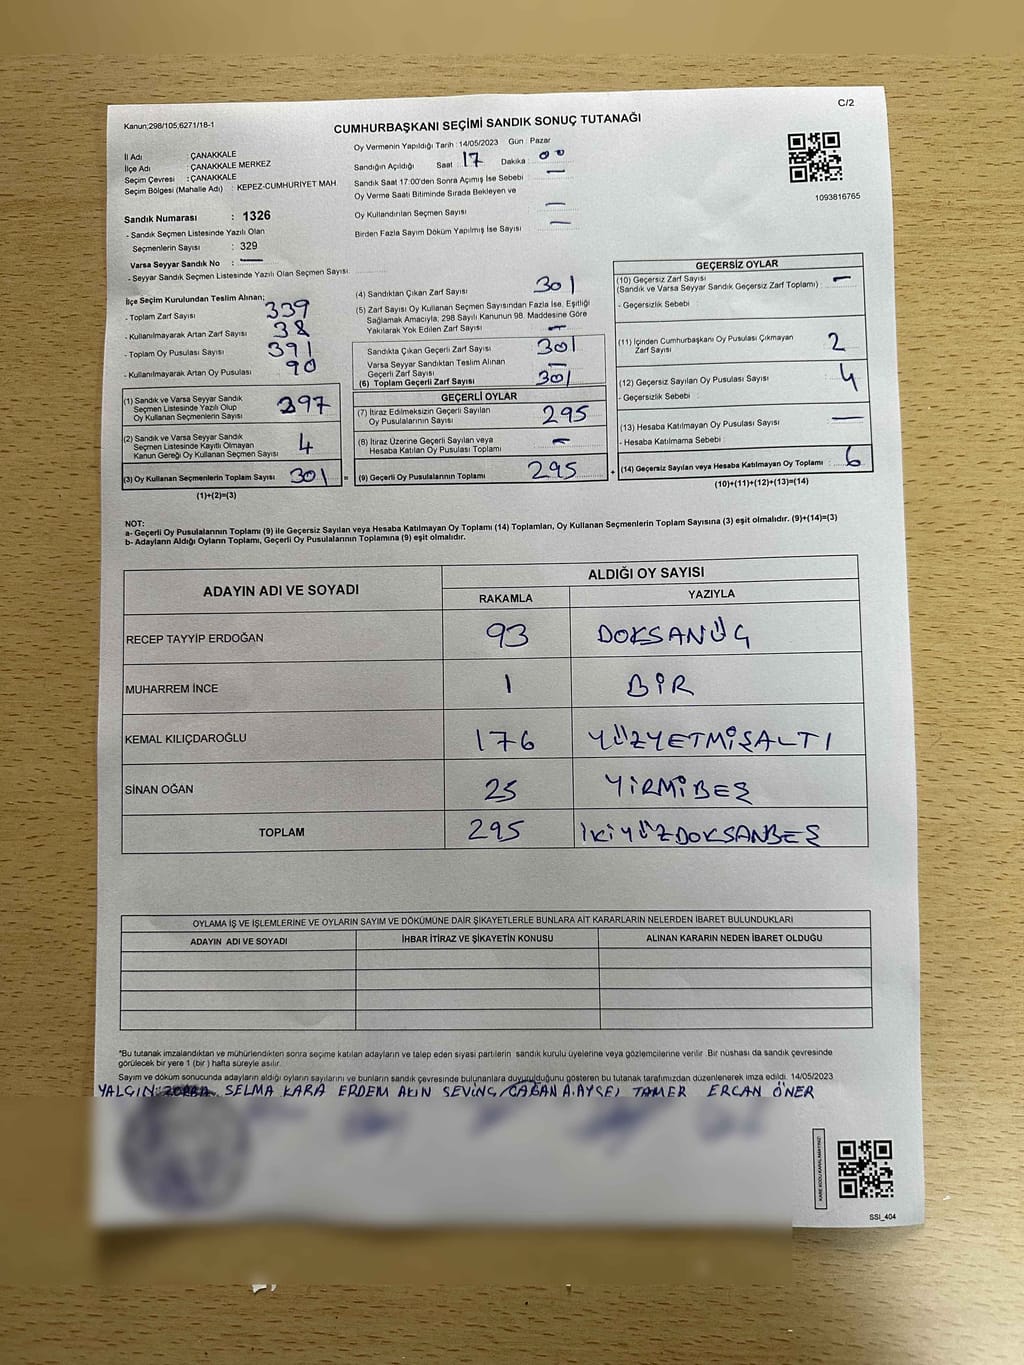 C/2
Kanun;298/105;6271/18-1
CUMHURBAŞKANI SEÇİMİ SANDIK SONUÇ TUTANAĞI
İl Adı : ÇANAKKALE
İlçe Adı : ÇANAKKALE MERKEZ
Seçim Çevresi : ÇANAKKALE
Seçim Bölgesi (Mahalle Adı) : KEPEZ-CUMHURIYET MAH
Sandık Numarası : 1326
- Sandık Seçmen Listesinde Yazılı Olan
Seçmenlerin Sayısı : 329
Varsa Seyyar Sandık No : —
- Seyyar Sandık Seçmen Listesinde Yazılı Olan Seçmen Sayısı
Oy Vermenin Yapıldığı Tarih : 14/05/2023 Gün : Pazar
Sandığın Açıldığı Saat : 17 Dakika : 00
Sandık Saat 17:00'den Sonra Açımış İse Sebebi : —
Oy Verme Saati Bitiminde Sırada Bekleyen ve
Oy Kullandırılan Seçmen Sayısı —
Birden Fazla Sayım Döküm Yapılmış İse Sayısı —
1093816765
İlçe Seçim Kurulundan Teslim Alınan;
- Toplam Zarf Sayısı : 339
- Kullanılmayarak Artan Zarf Sayısı : 38
- Toplam Oy Pusulası Sayısı : 391
- Kullanılmayarak Artan Oy Pusulası : 90
(1) Sandık ve Varsa Seyyar Sandık
Seçmen Listesinde Yazılı Olup
Oy Kullanan Seçmenlerin Sayısı : 297
(2) Sandık ve Varsa Seyyar Sandık
Seçmen Listesinde Kayıtlı Olmayan
Kanun Gereği Oy Kullanan Seçmen Sayısı : 4
(3) Oy Kullanan Seçmenlerin Toplam Sayısı : 301 =
(1)+(2)=(3)
(4) Sandıktan Çıkan Zarf Sayısı : 301
(5) Zarf Sayısı Oy Kullanan Seçmen Sayısından Fazla İse, Eşitliği
Sağlamak Amacıyla, 298 Sayılı Kanunun 98. Maddesine Göre
Yakılarak Yok Edilen Zarf Sayısı : —
Sandıkta Çıkan Geçerli Zarf Sayısı : 301
Varsa Seyyar Sandıktan Teslim Alınan
Geçerli Zarf Sayısı : —
(6) Toplam Geçerli Zarf Sayısı : 301
GEÇERLİ OYLAR
(7) İtiraz Edilmeksizin Geçerli Sayılan
Oy Pusulalarının Sayısı : 295
(8) İtiraz Üzerine Geçerli Sayılan veya
Hesaba Katılan Oy Pusulası Toplamı : —
(9) Geçerli Oy Pusulalarının Toplamı : 295 +
GEÇERSİZ OYLAR
(10) Geçersiz Zarf Sayısı
(Sandık ve Varsa Seyyar Sandık Geçersiz Zarf Toplamı) : —
- Geçersizlik Sebebi :
(11) İçinden Cumhurbaşkanı Oy Pusulası Çıkmayan
Zarf Sayısı : 2
(12) Geçersiz Sayılan Oy Pusulası Sayısı : 4
- Geçersizlik Sebebi :
(13) Hesaba Katılmayan Oy Pusulası Sayısı : —
- Hesaba Katılmama Sebebi :
(14) Geçersiz Sayılan veya Hesaba Katılmayan Oy Toplamı : 6
(10)+(11)+(12)+(13)=(14)
NOT:
a- Geçerli Oy Pusulalarının Toplamı (9) ile Geçersiz Sayılan veya Hesaba Katılmayan Oy Toplamı (14) Toplamları, Oy Kullanan Seçmenlerin Toplam Sayısına (3) eşit olmalıdır. (9)+(14)=(3)
b- Adayların Aldığı Oyların Toplamı, Geçerli Oy Pusulalarının Toplamına (9) eşit olmalıdır.
ADAYIN ADI VE SOYADI ALDIĞI OY SAYISI
RAKAMLA YAZIYLA
RECEP TAYYİP ERDOĞAN 93 DOKSANÜÇ
MUHARREM İNCE 1 BİR
KEMAL KILIÇDAROĞLU 176 YÜZYETMİŞALTI
SİNAN OĞAN 25 YİRMİBEŞ
TOPLAM 295 İKİYÜZDOKSANBEŞ
OYLAMA İŞ VE İŞLEMLERİNE VE OYLARIN SAYIM VE DÖKÜMÜNE DAİR ŞİKAYETLERLE BUNLARA AİT KARARLARIN NELERDEN İBARET BULUNDUKLARI
ADAYIN ADI VE SOYADI İHBAR İTİRAZ VE ŞİKAYETİN KONUSU ALINAN KARARIN NEDEN İBARET OLDUĞU
*Bu tutanak imzalandıktan ve mühürlendikten sonra seçime katılan adayların ve talep eden siyasi partilerin sandık kurulu üyelerine veya gözlemcilerine verilir. Bir nüshası da sandık çevresinde
görülecek bir yere 1 (bir) hafta süreyle asılır.
Sayım ve döküm sonucunda adayların aldığı oyların sayılarını ve bunların sandık çevresinde bulunanlara duyurulduğunu gösteren bu tutanak tarafımızdan düzenlenerek imza edildi. 14/05/2023
YALÇIN SELMA KARA ERDEM AKIN SEVİNÇ ÇAĞAN A.AYSEL TAMER ERCAN ÖNER
SSI_404